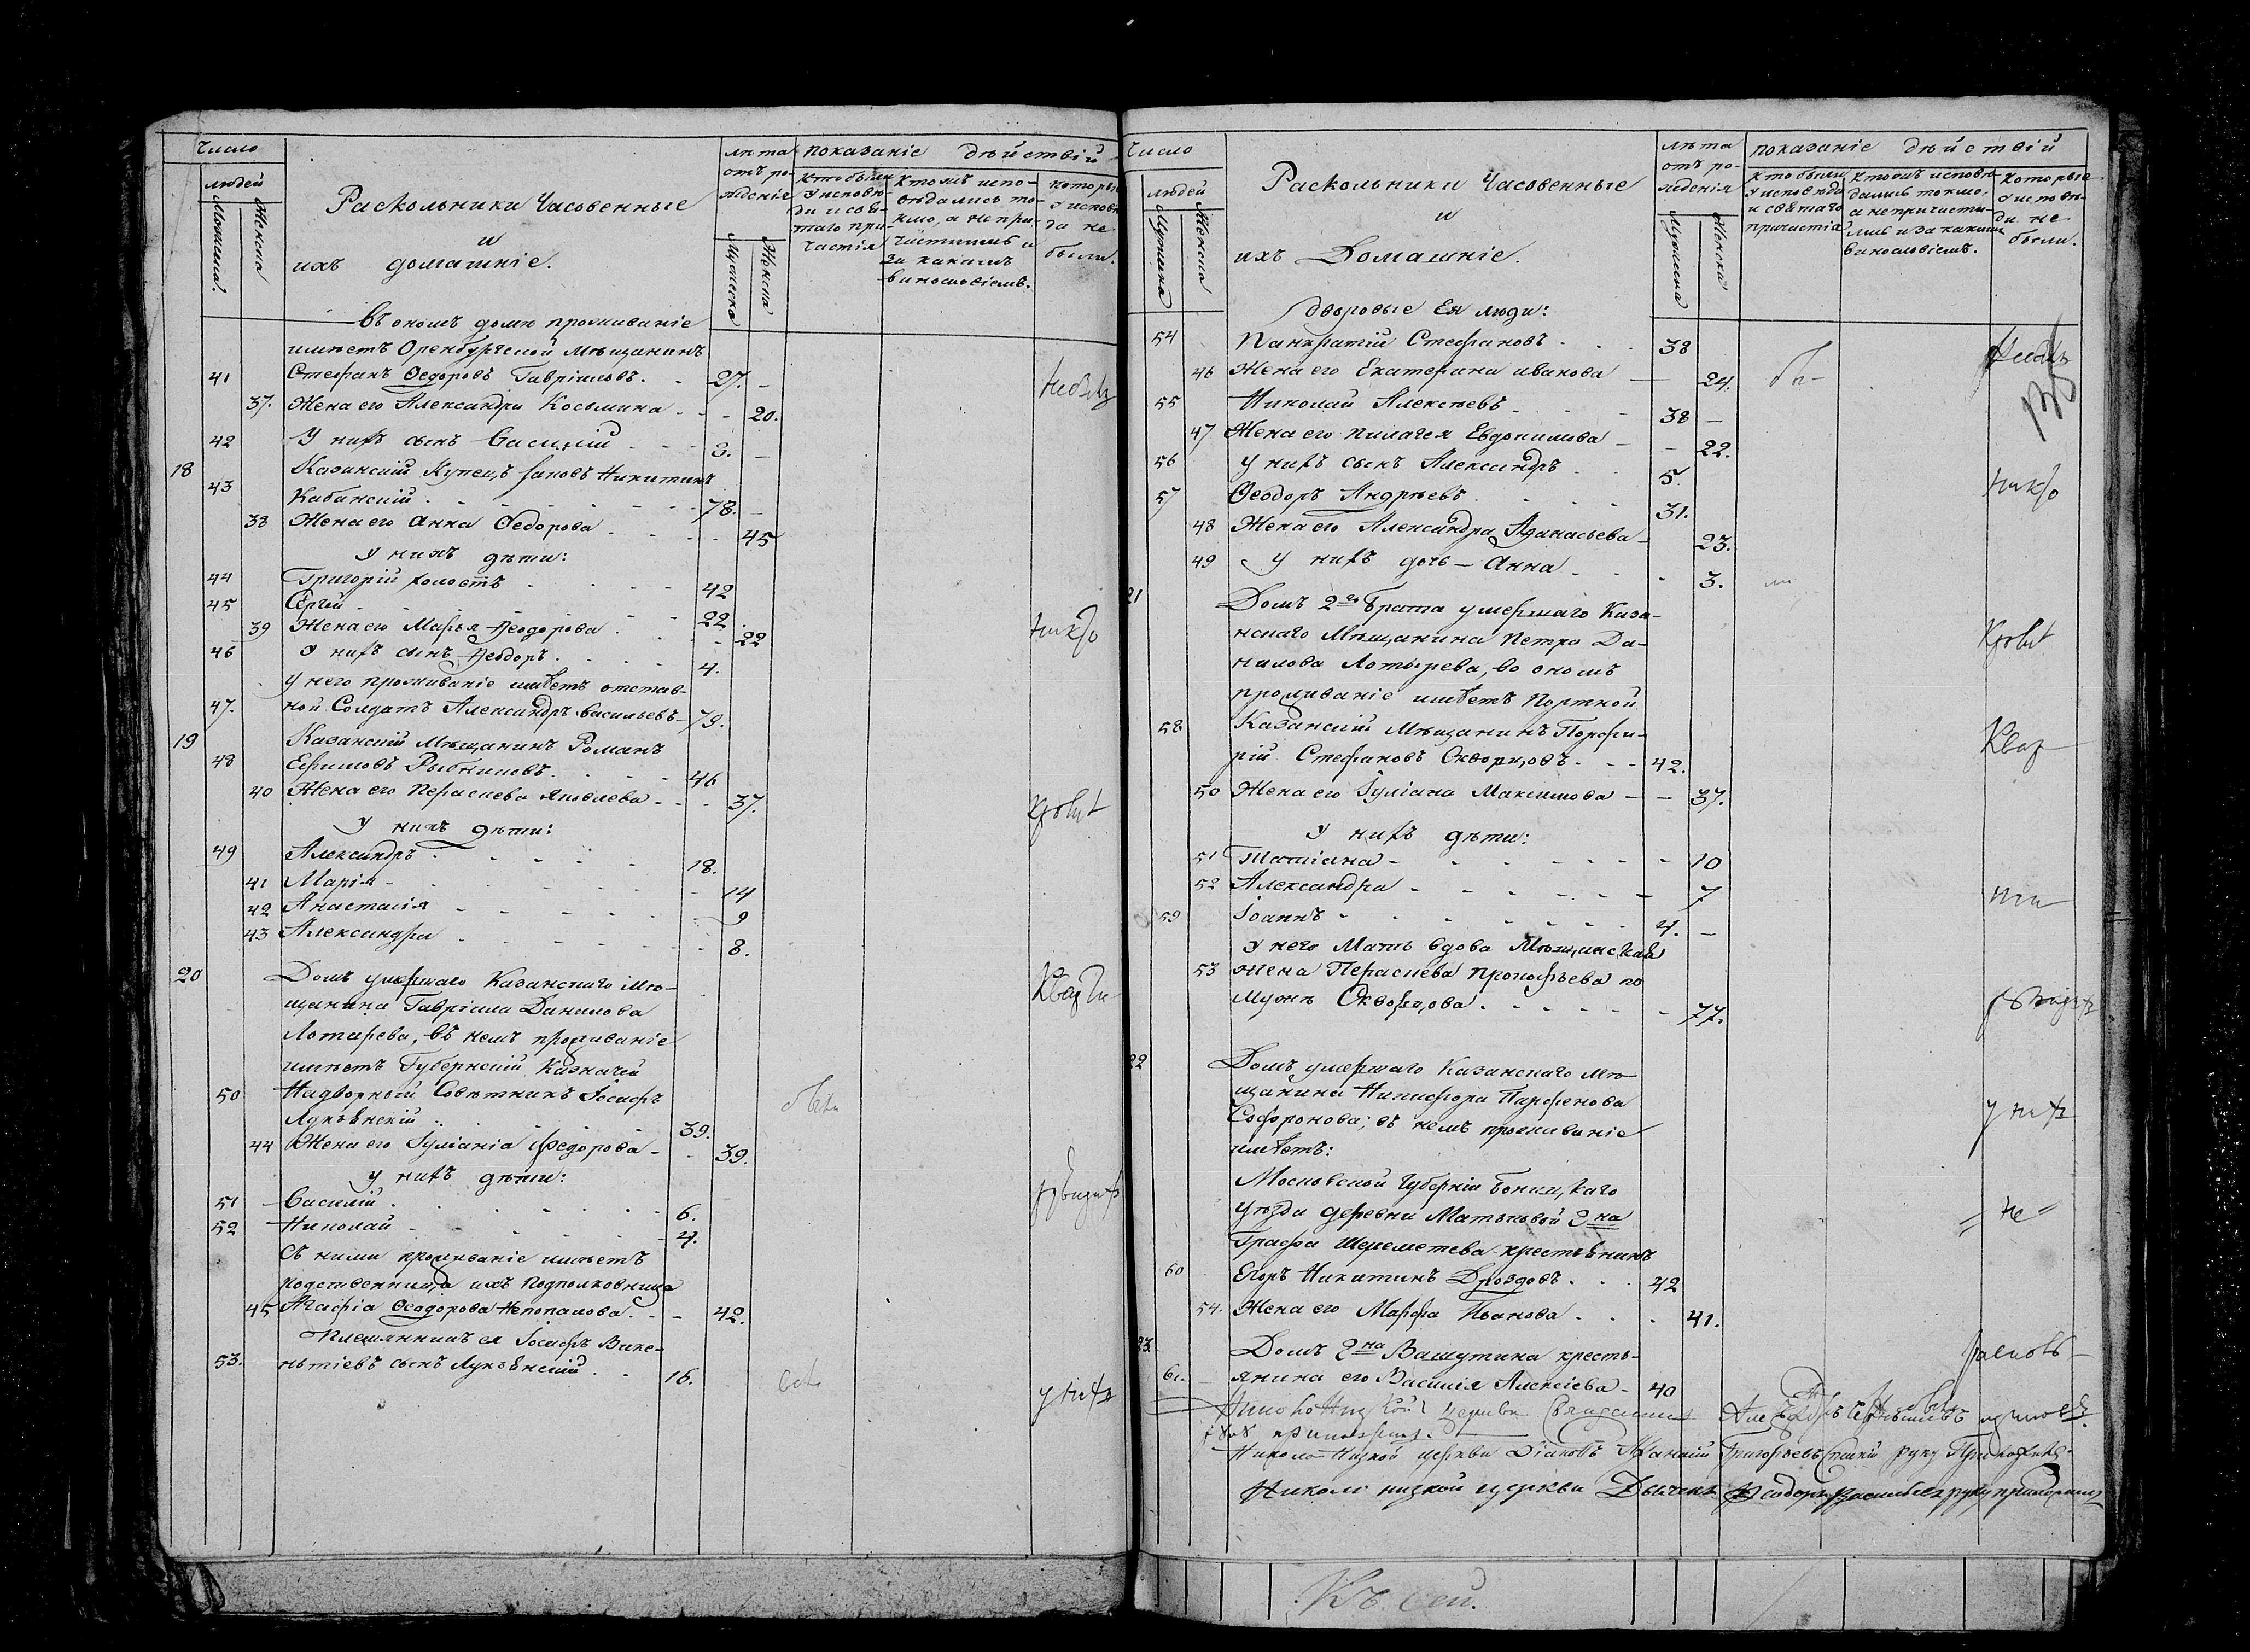 Число
людей
Мужеска.
Женска
Раскольники Часовенные
и
ихъ домашніе.
лѣта
отъ ро-
жденія
Мужеска
Женска
показаніе дѣйствій
Кто были
у исповѣ-
ди и свя-
таго при-
частія
Кто изъ испо-
вѣдались то-
кмо, а не при-
частились и
за какимъ
винословіемъ.
которые
у исповѣ-
ди не
были.
въ ономъ домѣ проживаніе
имѣетъ Оренбургской Мѣщанинъ
41 Стефанъ Ѳедоровъ Гавріиловъ. 27. -
37. Жена его Александра Косьмина - - 20.
42 У нихъ сынъ Василій - - 3. -
18 Казанскій Купецъ Іаковъ Никитинъ
43 Кабанскій - - - 78. -
38 Жена его Анна Ѳедорова - - 45
у нихъ дѣти:
44 Григорій холостъ - - 42
45 Сергій - - 22
39 Жена его Марья Ѳеодорова - - 22
46 у нихъ сынъ Ѳеодоръ - - 4.
у него проживаніе имѣетъ отстав-
47. ной Солдатъ Александръ Васильевъ - 79.
19 Казанскій Мѣщанинъ Романъ
48 Ефимовъ Рыбниковъ - - 46
40 Жена его Параскева Яковлева - - 37.
У нихъ дѣти:
49 Александръ - - 18.
41 Марія - - 14
42 Анастасія - - 9
43 Александра - - 8.
20 Домъ умершаго Казанскаго Мѣ-
щанина Гавріила Данилова
Лотарева, въ немъ проживаніе
имѣетъ Губернскій Казначей
50 Надворный Совѣтникъ Іосифъ
Лукъянскій - - 39.
44 Жена его Іуліанія Ѳедорова - - 39.
у нихъ дѣти:
51 Василій - - 6.
52 Николай - - 4.
Съ ними проживаніе имѣетъ
родственница ихъ Подполковница
45 Агафіа Ѳеодорова - - 42.
Племянникъ ея Іосифъ Вике-
53. нтіевъ сынъ Лукъянскій - - 16.
Число
людей
Мужеска
Женска
Раскольники Часовенные
и
ихъ Домашніе.
лѣта
отъ ро-
жденія
Мужеска
Женска
показаніе дѣйствій
Кто были
у исповѣди
и святаго
причастія
Кто изъ исповѣ-
дались токмо,
а не причасти-
лись и за какимъ
винословіемъ.
Которые
у исповѣ-
ди не
были.
Дворовые Ея люди:
54 Панкратій Стефановъ - - 38
46 Жена его Екатерина Иванова - - 24.
55 Николай Алексѣевъ - - 38 -
47 Жена его Пилагея Евдокимова - - 22.
56 у нихъ сынъ Александръ - - 5.
57 Ѳеодоръ Андреевъ - - 31.
48 Жена его Александра Аѳанасьева - 23.
49 у нихъ дочь - Анна - - 3.
21 Домъ 2го брата умершаго Каза-
нскаго Мѣщанина Петра Да-
нилова Лотырева, во ономъ
проживаніе имѣетъ Портной
58 Казанскій Мѣщанинъ Порфи-
рій Стефановъ Скворцовъ - - 42.
50 Жена его Іуліана Максимова - - 37.
У нихъ дѣти:
51 Татіана - - 10
52 Александра - - 7
59 Іоаннъ - - 4. -
у него Мать вдова Мѣщанская
53 жена Параскева Прокофьева по
мужѣ Скворцова - - 77.
22 Домъ умершаго Казанскаго Мѣ-
щанина Никифора Парфенова
Софронова; въ немъ проживаніе
имѣетъ:
Московской Губерніи
уѣзда деревни Матъковой Гна
Графа Шереметева крестьянинъ
60 Егоръ Никитинъ Дроздовъ - - 42
54. Жена его Марфа Иванова - - 41.
23. Домъ Гна Вашутина кресть-
61. янина его Василія Алексіева - 40
Николо Низкой церкви Священникъ
Николо-Низкой церкви Діаконъ Григорьевъ руку Приложилъ
Николо низкой церкви Дьячекъ Ѳеодоръ Васильевъ руку приложилъ
Къ сей.